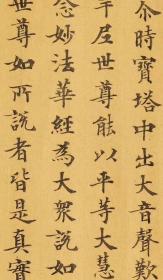 尒時寶塔中出大音聲歎
牟尼世尊能以平等大慧
念妙法華經為大衆說如
世尊如所說者皆是真實